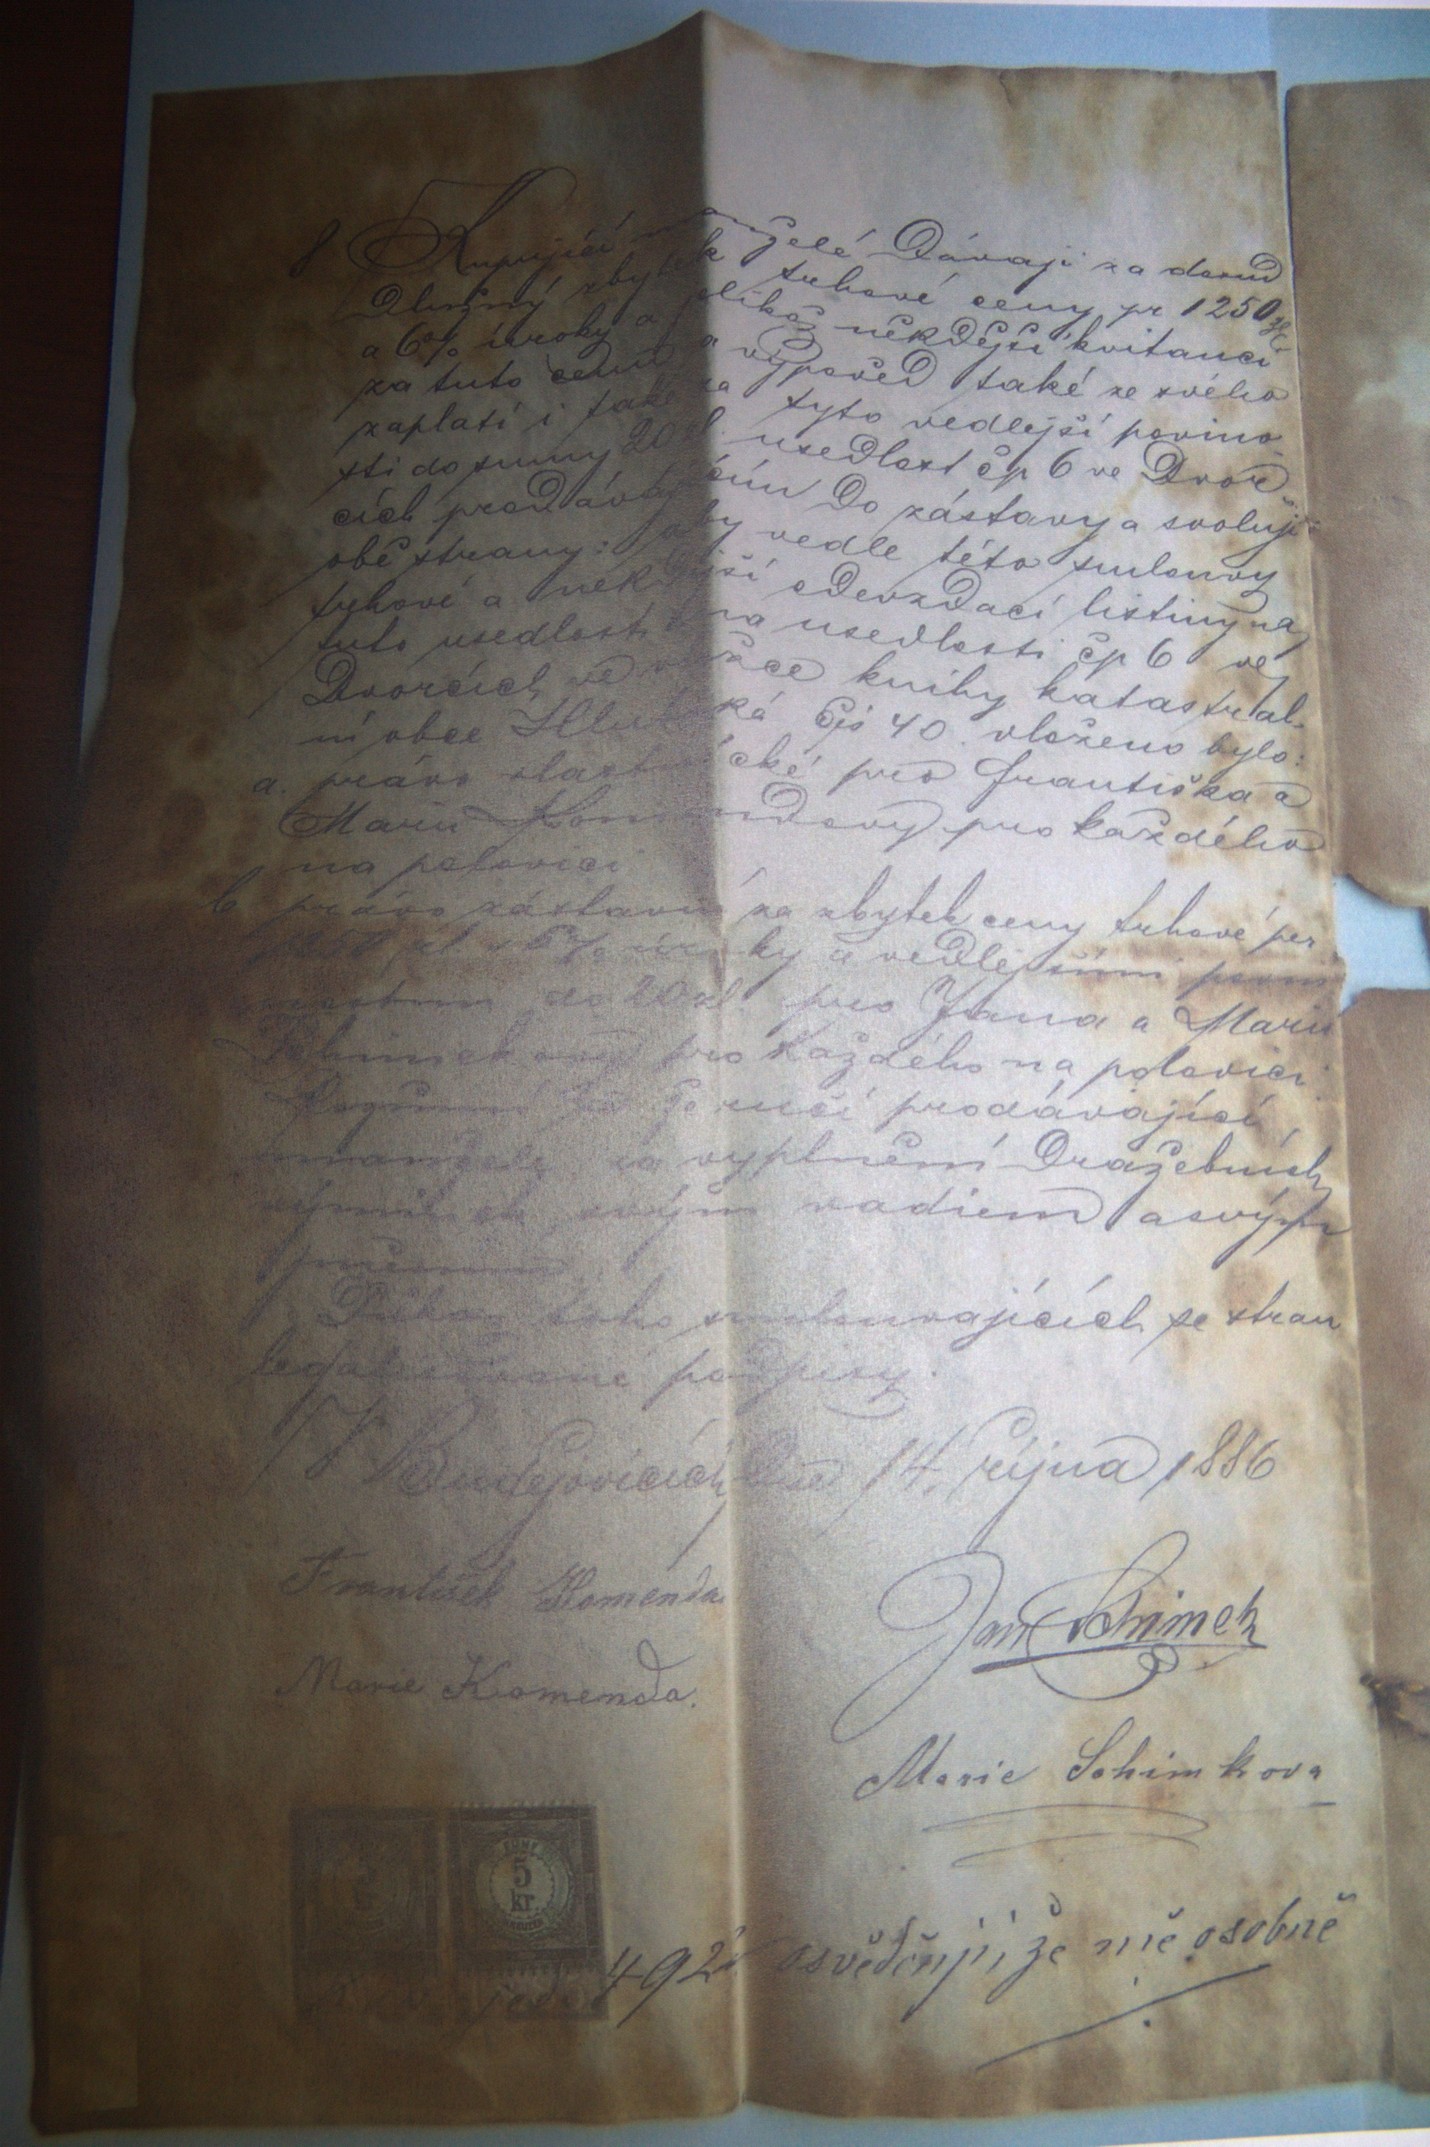 8 Kupující manželé dávají za dosud
dlužný zbytek trhové ceny pr 1250 zl
a 6% úroky a jelikož někdejší kvitanci
za tuto cenu a výpověď také ze svého
zaplatí i také za tyto vedlejší povino
sti do sumy 20 zl. usedlost čp 6 ve Dvor
cích prodávajícím do zástavy a svolují
obě strany: aby vedle této smlouvy
trhové a někdejší odevzdací listiny na
tuto usedlost na usedlosti čp 6 ve
Dvorcích ve knihy katastral-
ní obce čís 40 vloženo bylo:
a. právo vlastnické pro Františka a
Marii Komendovy pro každého
na polovici
b právo zástavní za zbytek ceny trhové per
1250 zl s 6% úroky a vedlejšími povin
nostmi do 20 zl. pro Jana a Marii
Schimekovy pro každého na polovici
že ručí prodávající
manželé za vyplnění dražebních
výmínek svým vadiem a svým
jměním
Důkaz toho smlouvajících se stran
legalisované podpisy.
V Budějovicích dne 14. října 1886
František Komenda
Jan Schimek
Marie Komenda.
Marie Schimkova
5
kr.
492 osvědčuji, že mě osobně